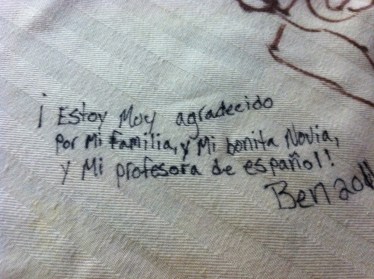 ¡Estoy Muy agradecido
por Mi familia, y Mi bonita Novia,
y Mi profesora de español!
Ben 2011